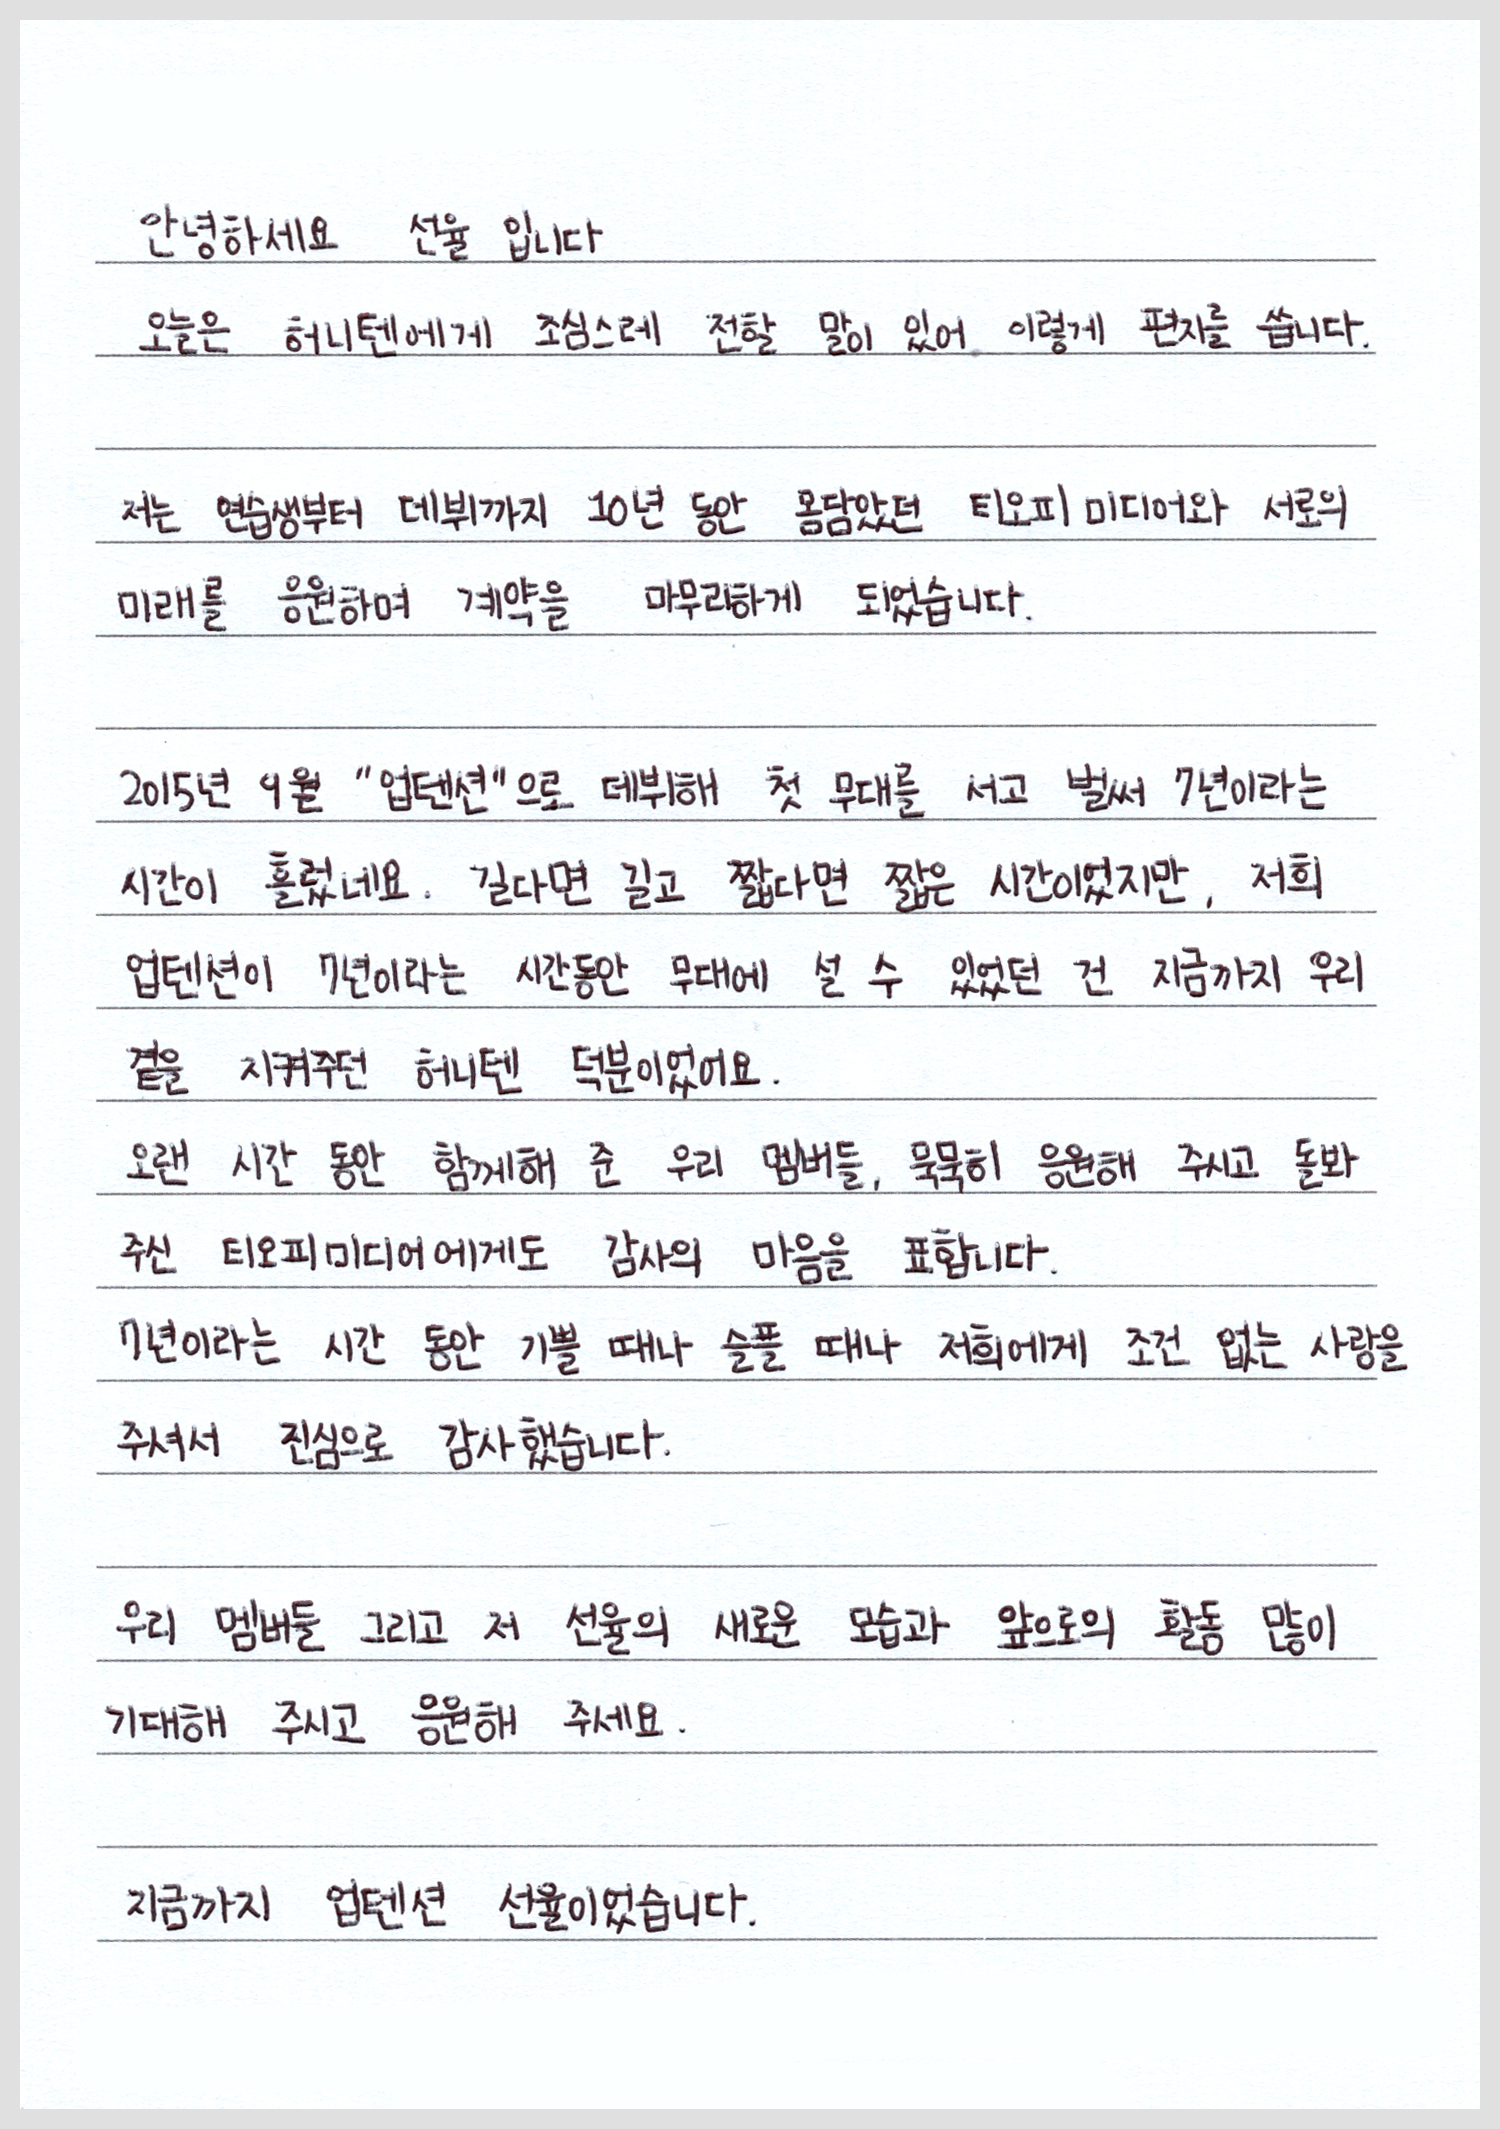 안녕하세요 선율 입니다
오늘은 허니텐에게 조심스레 전할 말이 있어 이렇게 편지를 씁니다.
저는 연습생부터 데뷔까지 10년 동안 몸담았던 티오피미디어와 서로의
미래를 응원하며 계약을 마무리하게 되었습니다.
2015년 9월 "업텐션"으로 데뷔해 첫 무대를 서고 벌써 7년이라는
시간이 흘렀네요. 길다면 길고 짧다면 짧은 시간이었지만, 저희
업텐션이 7년이라는 시간동안 무대에 설 수 있었던 건 지금까지 우리
곁을 지켜주던 허니텐 덕분이었어요.
오랜 시간 동안 함께해 준 우리 멤버들, 묵묵히 응원해 주시고 돌봐
주신 티오피미디어에게도 감사의 마음을 표합니다.
7년이라는 시간 동안 기쁠 때나 슬플 때나 저희에게 조건 없는 사랑을
주셔서 진심으로 감사했습니다.
우리 멤버들 그리고 저 선율의 새로운 모습과 앞으로의 활동 많이
기대해 주시고 응원해 주세요.
지금까지 업텐션 선율이었습니다.